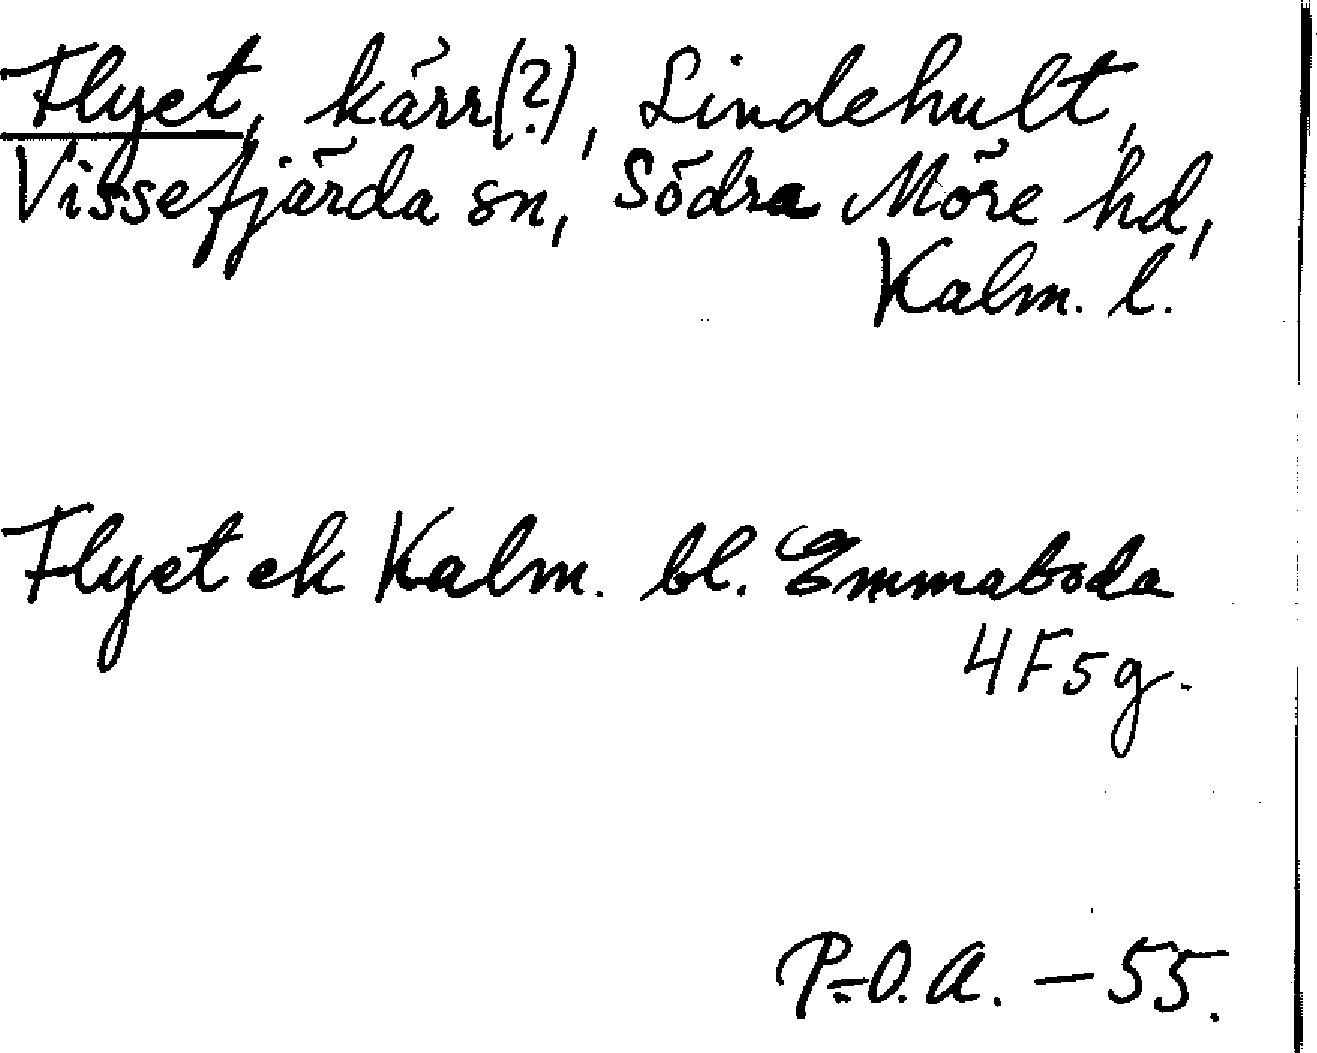 Flyet, kärr(?), Lindehult,
Vissefjärda sn, Södra Möre hd,
Kalm. l.
Flyet ek Kalm. bl. Emmaboda
4F5g.
P.-O.A. - 55.